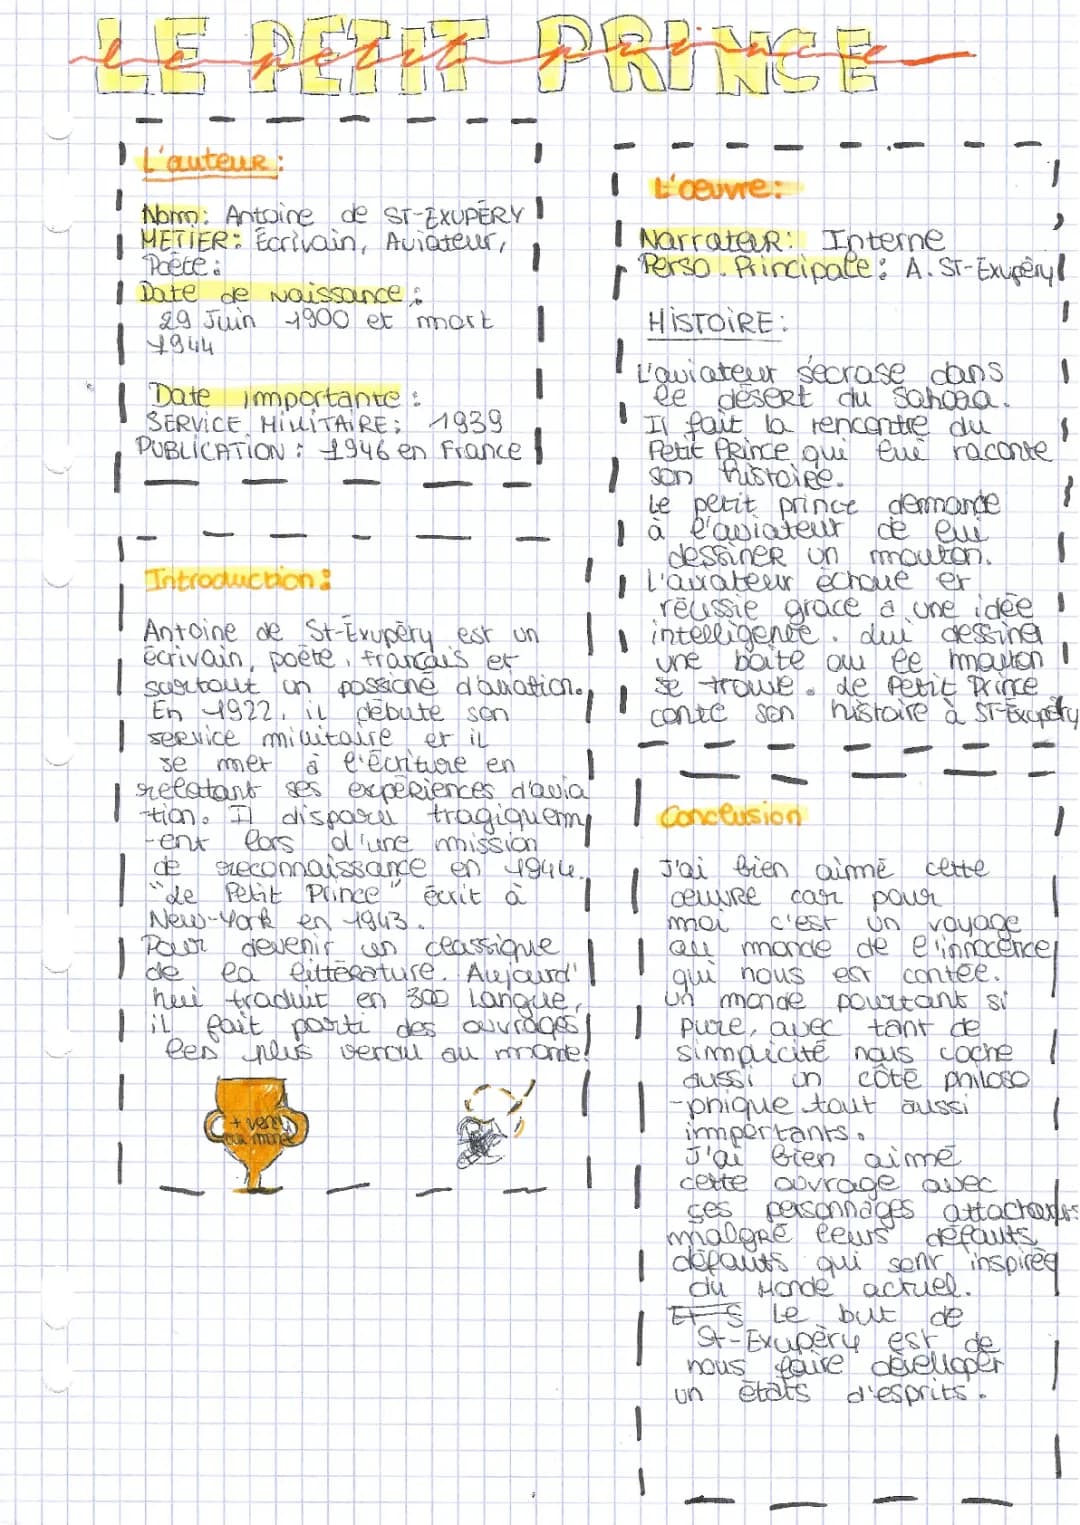 LE PETIT PRINCE
le petit prince
L'auteur :
Nom : Antoine de ST-EXUPÉRY
METIER : Écrivain, Aviateur,
Poète :
Date de Naissance :
29 Juin 1900 et mort
1944
Date importante :
SERVICE MILITAIRE : 1939
PUBLICATION : 1946 en France
Introduction :
Antoine de St-Exupéry est un
écrivain, poète, français et
surtout un passioné d'aviation.
En 1922, il débute son
service militaire et il
se met à l'écriture en
relatant ses expériences d'avia
-tion. Il disparu tragiquem
-ent lors d'une mission
de reconnaissance en 1944.
"Le Petit Prince" écrit à
New-York en 1943.
Pour devenir un classique
de la littérature. Aujourd'
hui traduit en 300 langue,
il fait parti des ouvrages
les plus vendu au monde!
+ vendu
au monde
L'œuvre :
Narrateur : Interne
Perso. Principale : A. ST-Exupéry
HISTOIRE :
L'aviateur s'écrase dans
le désert du Sahara.
Il fait la rencontre du
Petit Prince qui lui raconte
son histoire.
Le petit prince demande
à l'aviateur de lui
dessiner un mouton.
L'aviateur échoue et
réussie grace à une idée
intelligente. Lui dessiner
une boîte ou le mouton
se trouve. Le Petit Prince
conte son histoire à ST-Exupéry
Conclusion
J'ai bien aimé cette
œuvre car pour
moi c'est un voyage
au monde de l'innocence,
qui nous est contée.
un monde pourtant si
pure, avec tant de
simplicité nous cache
aussi un côté philoso
-phique tout aussi
importants.
J'ai bien aimé
cette ouvrage avec
ses personnages attachants
malgré leurs défauts,
défauts qui sont inspirée
du Monde actuel.
Le but de
St-Exupéry est de
nous faire développer
un états d'esprits.